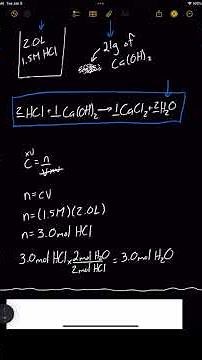 2.0L
1.5M HCl
21g of
Ca(OH)₂
2HCl + 1Ca(OH)₂ → 1CaCl₂ + 2H₂O
xV
C = n
V xV
n = CV
n = (1.5M)(2.0L)
n = 3.0mol HCl
3.0mol HCl x 2mol H₂O = 3.0mol H₂O
2mol HCl